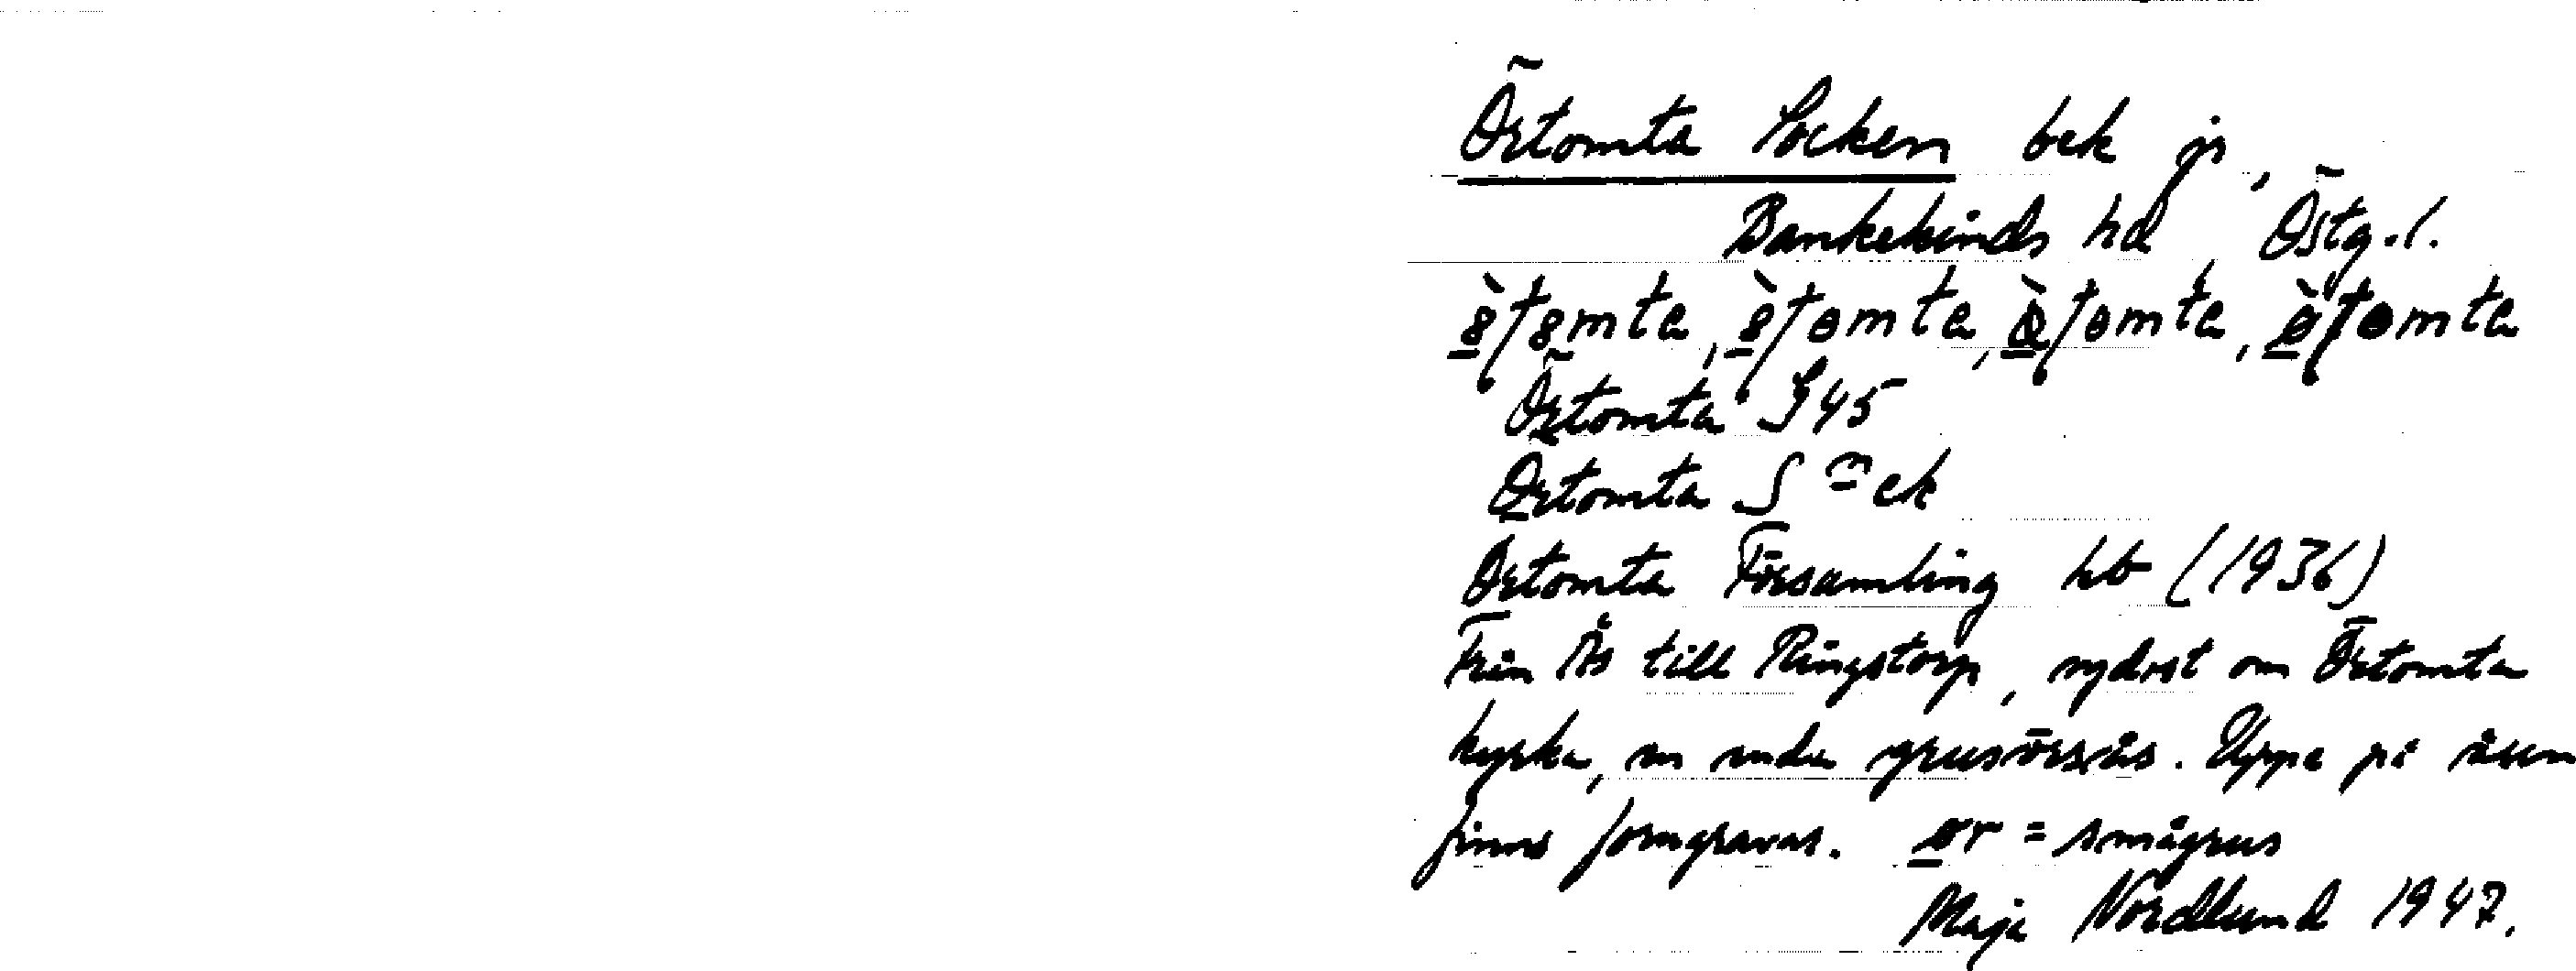 Örtomta Socken bek js,
Bankekinds hd Östg.l.
Örtomta J45
Örtomta S ek
Örtomta Församling hb (1936)
Från Ås till Ringstorp, sydost om Örtomta
kyrka, en enda grusörsås. Uppe på åsen
finns forngravar. ør = smågrus
Maja Nordlund 1947.